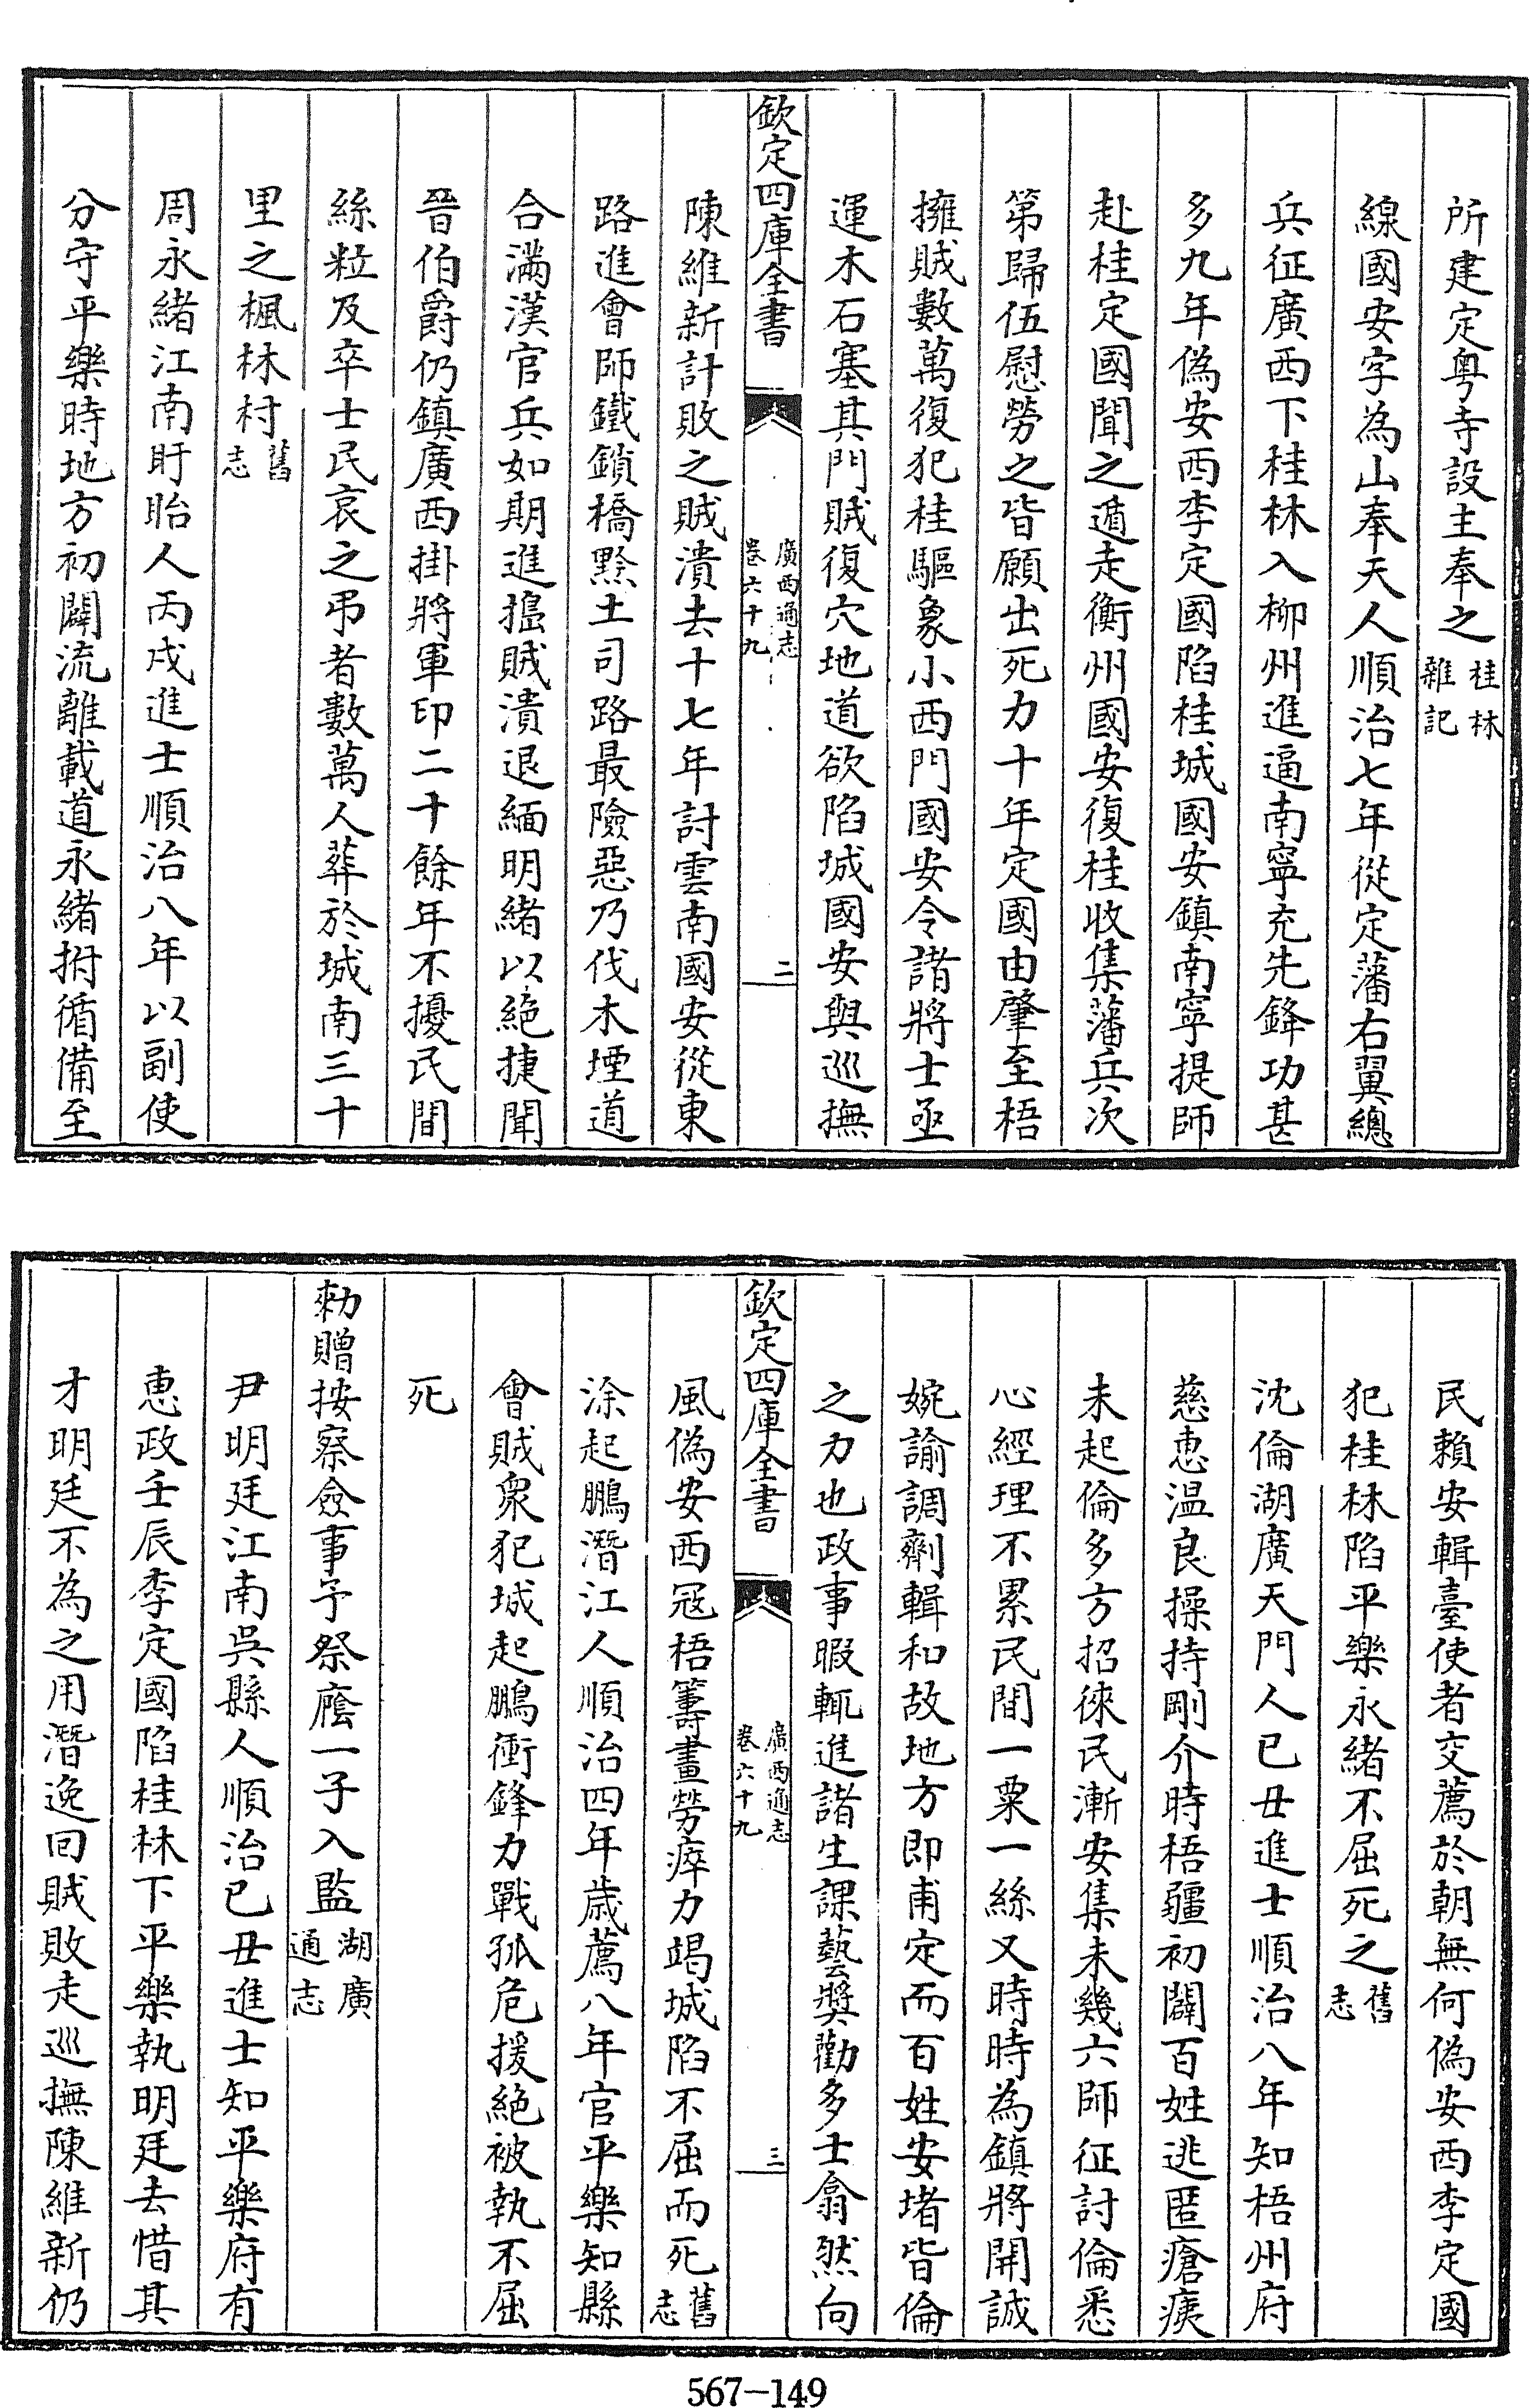 所建定粤寺設主奉之桂林雜記
線國安字為山奉天人順治七年從定藩右翼總
兵征廣西下桂林入柳州進逼南寧充先鋒功甚
多九年偽安西李定國陷桂城國安鎮南寧提師
赴桂定國聞之遁走衡州國安復桂收集藩兵次
第歸伍慰勞之皆願出死力十年定國由肇至梧
擁賊數萬復犯桂驅象小西門國安令諸將士亟
運木石塞其門賊復穴地道欲陷城國安與巡撫
欽定四庫全書 廣西通志卷六十九 二
陳維新計敗之賊潰去十七年討雲南國安從東
路進會師鐵鎖橋黔土司路最險惡乃伐木堙道
合滿漢官兵如期進搗賊潰退緬明緒以絕捷聞
晉伯爵仍鎮廣西掛將軍印二十餘年不擾民間
絲粒及卒士民哀之弔者數萬人葬於城南三十
里之楓林村舊志
周永緒江南盱眙人丙戌進士順治八年以副使
分守平樂時地方初闢流離載道永緒拊循備至
民賴安輯臺使者交薦於朝無何偽安西李定國
犯桂林陷平樂永緒不屈死之舊志
沈倫湖廣天門人已丑進士順治八年知梧州府
慈恵温良操持剛介時梧疆初闢百姓逃匿瘡痍
未起倫多方招徠民漸安集未幾六師征討倫悉
心經理不累民間一粟一絲又時時為鎮將開誠
婉諭調劑輯和故地方即甫定而百姓安堵皆倫
之力也政事暇輒進諸生課藝奬勸多士翕然向
欽定四庫全書 廣西通志卷六十九 三
風偽安西冦梧籌畫勞瘁力竭城陷不屈而死舊志
涂起鵬潛江人順治四年歲薦八年官平樂知縣
會賊衆犯城起鵬衝鋒力戰孤危援絕被執不屈
死
勅贈按察僉事予祭廕一子入監湖廣通志
尹明廷江南吳縣人順治已丑進士知平樂府有
恵政壬辰李定國陷桂林下平樂執明廷去惜其
才明廷不為之用潛逸回賊敗走巡撫陳維新仍
567-149